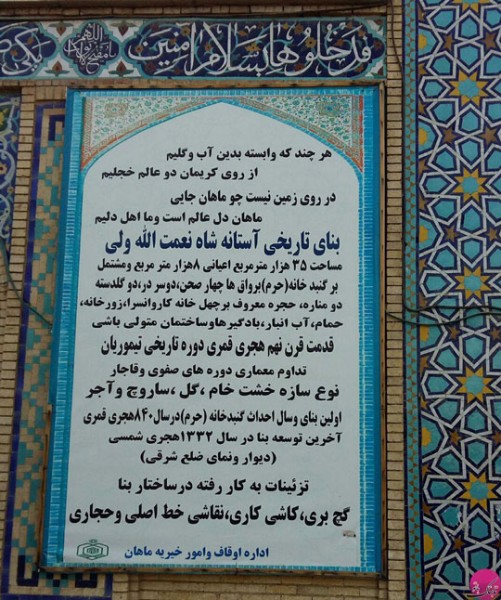 فدخلوها بسلام آمنین
هر چند که وابسته بدین آب وگلیم
از روی کریمان دو عالم خجلیم
در روی زمین نیست چو ماهان جایی
ماهان دل عالم است وما اهل دلیم
بنای تاریخی آستانه شاه نعمت الله ولی
مساحت ۳۵ هزار مترمربع اعیانی ۸هزار متر مربع ومشتمل
بر گنبد خانه(حرم)برواق ها چهار صحن،دوسر در،دو گلدسته
دو مناره، حجره معروف برچهل خانه کاروانسرا،زورخانه،
حمام،آب انبار،بادگیرهاوساختمان متولی باشی
قدمت قرن نهم هجری قمری دوره تاریخی تیموریان
تداوم معماری دوره های صفوی وقاجار
نوع سازه خشت خام ،گل ،ساروج وآجر
اولین بنای وسال احداث گنبدخانه (حرم)درسال۸۴۰هجری قمری
آخرین توسعه بنا در سال ۱۳۳۲هجری شمسی
(دیوار ونمای ضلع شرقی)
تزئینات به کار رفته درساختار بنا
گچ بری،کاشی کاری،نقاشی خط اصلی وحجاری
اداره اوقاف وامور خیریه ماهان